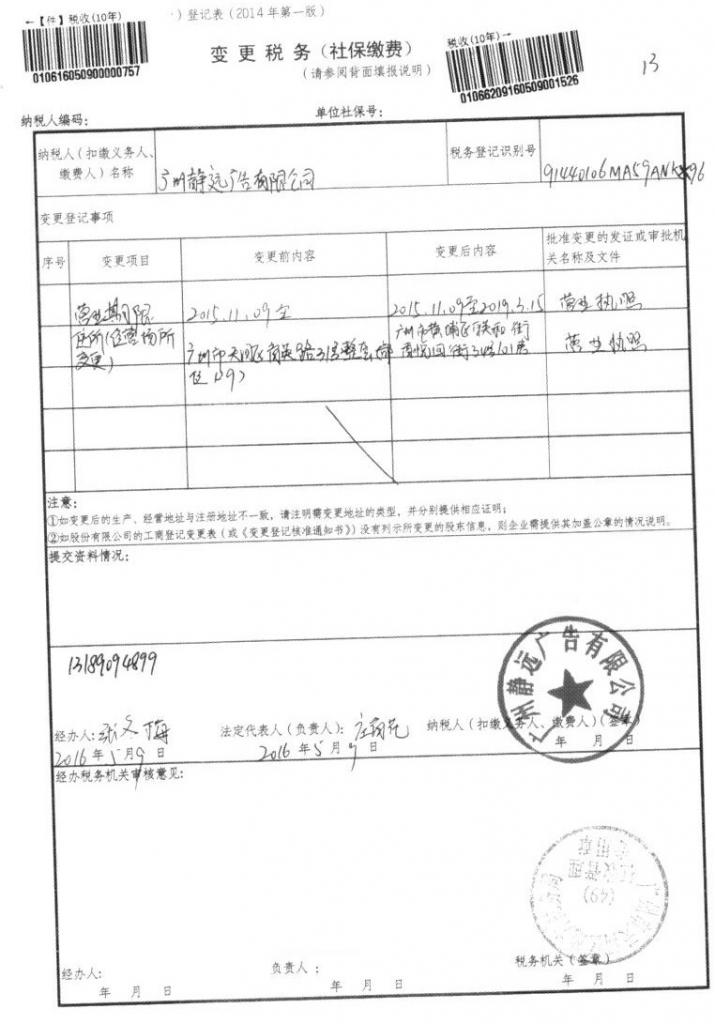 ←【件】税收(10年)
)登记表(2014年第一版)
010616050900000757
变更税务(社保缴费)
(请参阅背面填报说明)
税收(10年)→
01066209160509001526
13
纳税人编码:
单位社保号:
纳税人(扣缴义务人、缴费人)名称
广州静远广告有限公司
税务登记识别号
变更登记事项
序号
变更项目
变更前内容
变更后内容
批准变更的发证或审批机关名称及文件
营业期限
2015.11.09至
2015.11.09至2019.3.15
营业执照
住所(经营场所变更)
广州市天河区
广州市黄埔区联和街
营业执照
注意:
①如变更后的生产、经营地址与注册地址不一致,请注明需变更地址的类型,并分别提供相应证明;
②如股份有限公司的工商登记变更表(或《变更登记核准通知书》)没有列示所变更的股东信息,则企业需提供其加盖公章的情况说明。
提交资料情况:
13189094899
广州静远广告有限公司
经办人:
法定代表人(负责人):
纳税人(扣缴义务人、缴费人)(签章)
2016年5月9日
2016年5月9日
年 月 日
经办税务机关审核意见:
(49)
经办人:
负责人:
税务机关(签章)
年 月 日
年 月 日
年 月 日